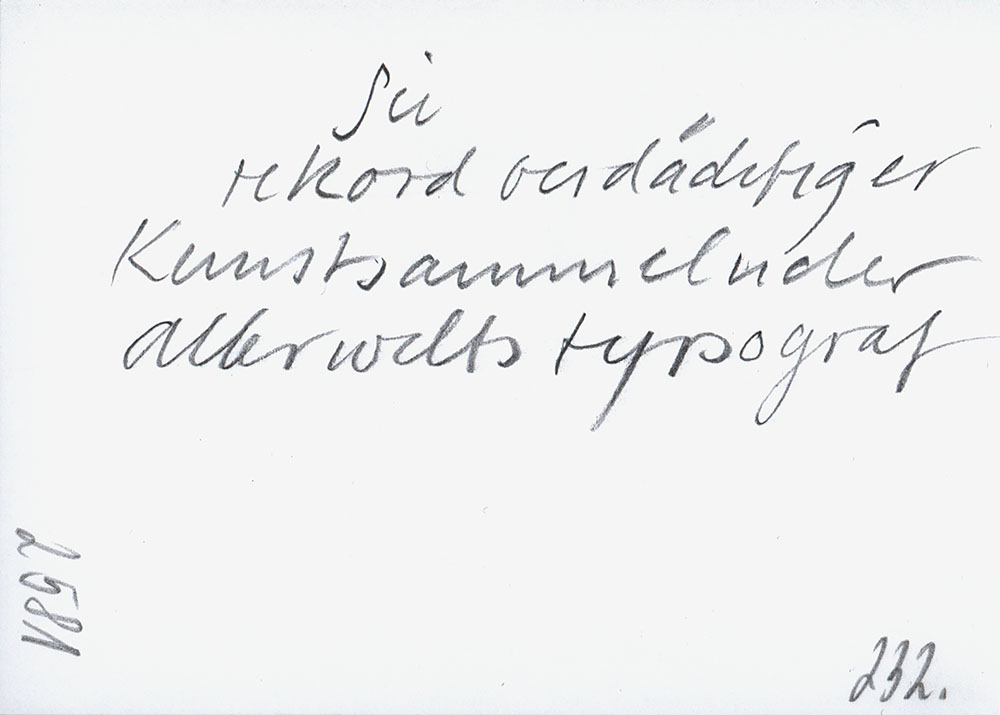 Sie
rekord verdächtiger
Kunstsammelnder
allerwelts typograf
2581
232.